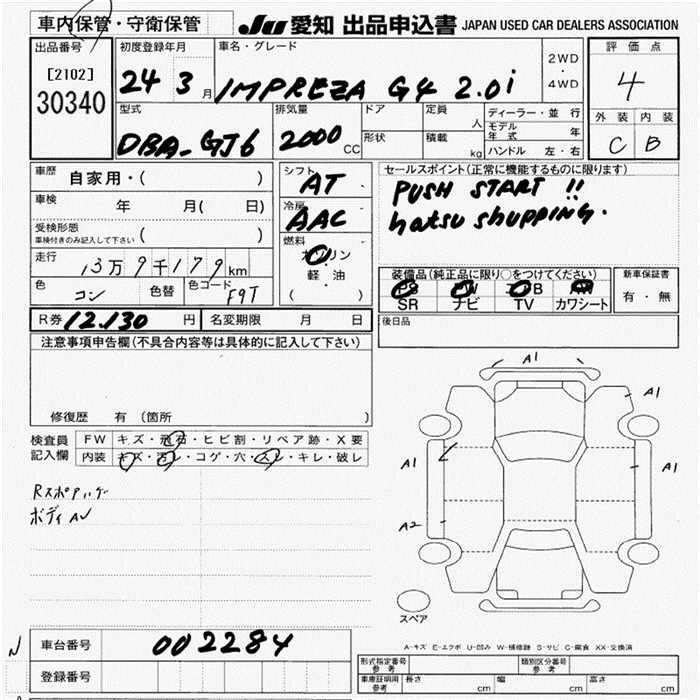 車内保管・守衛保管
JU 愛知 出品申込書 JAPAN USED CAR DEALERS ASSOCIATION
出品番号
[2102]
30340
初度登録年月
24 3月
車名・グレード
IMPREZA G4 2.0i
2WD
・
4WD
評価点
4
外装 内装
C B
型式
DBA-GJ6
排気量
2000 CC
ドア
形状
定員
人
積載
kg
ディーラー・並行
モデル年式 年
ハンドル 左・右
車歴 自家用・( )
車検 年 月( 日)
受検形態
車検付きのみ記入して下さい ( )
走行 13万9千179km
色 コン 色替 色コード F9T
シフト
AT
冷房
AAC
燃料
ガソリン
軽・油
( )
セールスポイント(正常に機能するものに限ります)
PUSH START !!
hatsu shupping.
装備品(純正品に限り○をつけてください)
SR ナビ TV カワシート
新車保証書
有・無
R券 12,130 円 名変期限 月 日
後日品
注意事項申告欄(不具合内容等は具体的に記入して下さい)
修復歴 有 (箇所 )
検査員記入欄
FW キズ・飛石・ヒビ割・リペア跡・X要
内装 キズ・汚レ・コゲ・穴・スレ・キレ・破レ
A1
A1
A1
A1
A2
スペア
A-キズ E-エクボ U-凹み W-補修跡 S-サビ C-腐食 XX-交換済
車台番号 002284
登録番号
型式指定番号 参考
類別区分番号 参考
車庫証明用 参考 長さ cm 幅 cm 高さ cm